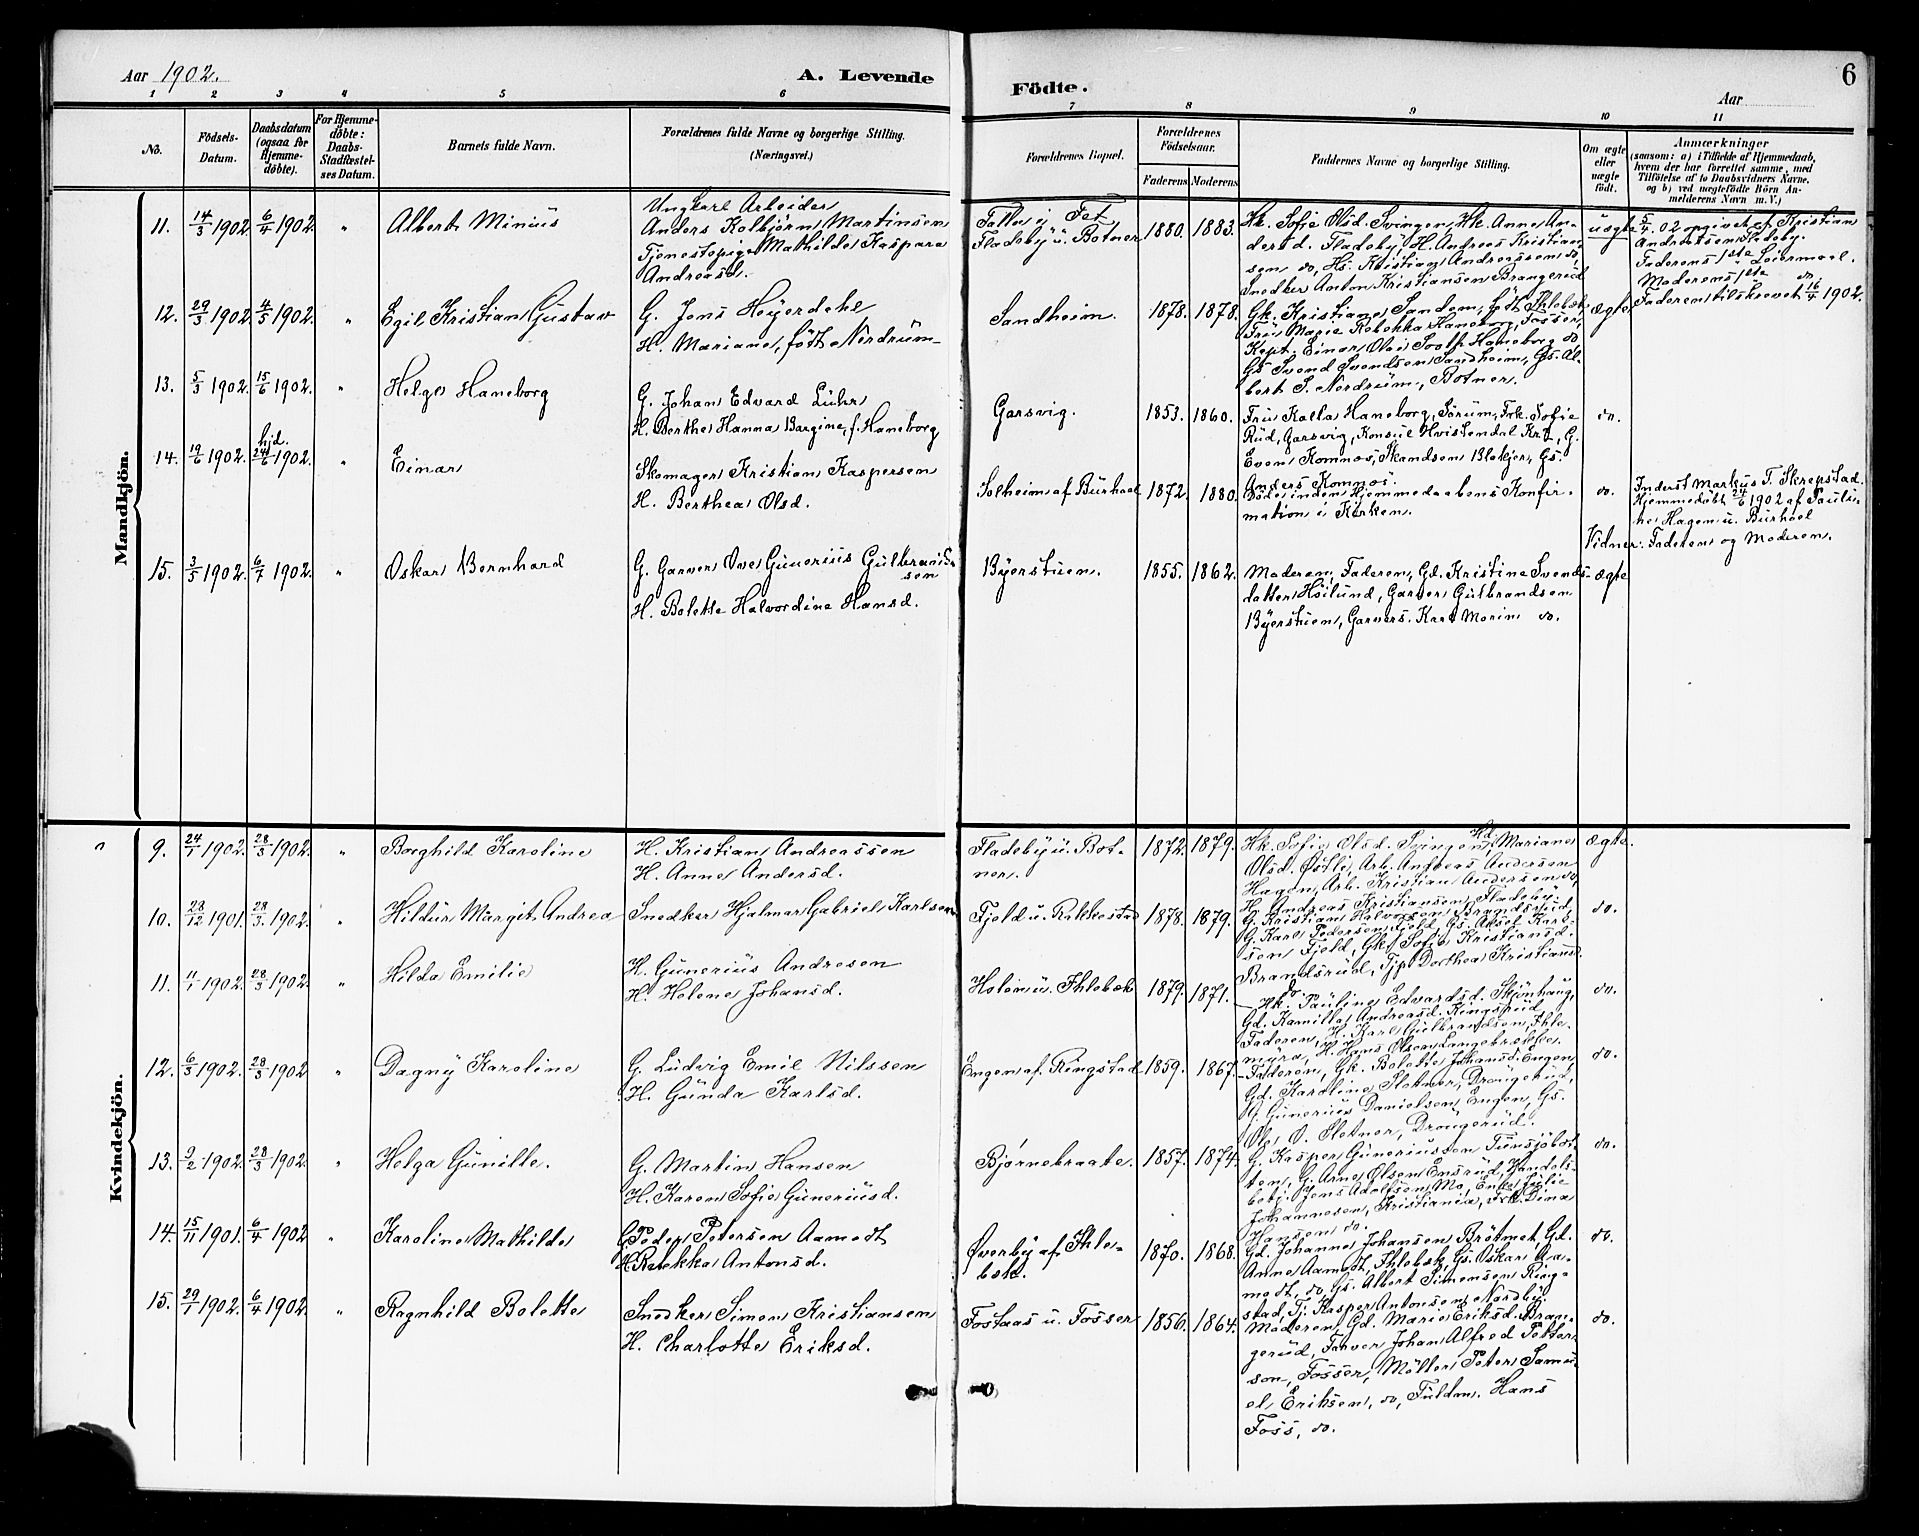 Aar 1902.
A. Levende
Födte.
Aar
6
1 2 3 4 5 6 7 8 9 10 11
No.
Födsels-Datum.
Daabsdatum (ogsaa for Hjemme-döbte).
For Hjemme-döbte: Daabs-Stadfæstel-ses Datum.
Barnets fulde Navn.
Forældrenes fulde Navne og borgerlige Stilling.
(Næringsvei.)
Forældrenes Bopæl.
Forældrenes Födselsaar.
Faderens Moderens
Faddernes Navne og borgerlige Stilling.
Om ægte eller uægte födt.
Anmærkninger
(saasom: a) i Tilfælde af Hjemmedaab, hvem der har forrettet samme, med Tilföielse af to Daabsvidners Navne, og b) ved uægtefödte Börn An-melderens Navn m.V.)
Mandkjön.
11. 14/3 1902 6/4 1902 " Albert Minius
Ungkarl Arbeider
Anders Kolbjörn Martinsen
Tjenestepige Mathilde Kaspara
Andreasd.
Falle i Fet
Fladeby u. Botner
1880. 1883.
Hk. Sofie Olsd. Svingen, Hk. Anne An-
dersd. Fladeby, H. Andreas Kristian-
sen do, Hs. Kristian Andreassen do,
Snedker Anton Kristiansen Brangerud
uægte
5/4 02 opgivet af Kristian
Andreassen Fladeby.
Faderens 1ste Leiermaal.
Moderens 1ste do
Faderen tilskrevet 16/4 1902.
12. 29/3 1902 4/5 1902. " Egil Kristian Gustav
G. Jens Höyerdahl
H. Mariane, födt Nordrum
Sandheim. 1878. 1878.
Gk. Kristiane Sandem, födt Ihlebæk,
Fru Marie Rebekka Haneborg, Fosser,
Kapt. Einar Olai Haneborg do,
Gs Svend Svendsen Sandheim, Gs. Al-
bert S. Nordrum, Botner.
ægte
13. 5/3 1902 15/6 1902. " Helge Haneborg
G. Johan Edvard Lühr
H. Berthe Hanna Bargine, f. Haneborg
Garsvig. 1853. 1860.
Fru Kalla Haneborg, Sörum, Frk. Sofie
Rud, Garsvig, Konsul Hvistendal Kra, G.
Even Komnæs, Skandsen Blakjer, Gs.
Anders Komnæs.
do.
14. 19/6 1902. hjd. 24/6 1902. " Einar
Skomager Kristian Kaspersen
H. Berthea Olsd.
Solheim af Burholt 1872. 1880.
Döde inden Hjemmedaabens Konfir-
mation i Kirken.
do.
Inderst Markus T. Skrepstad
Hjemmedöbt 24/6 1902 af Pauli-
ne Hagen u. Burhol
Vidner: Faderen og Moderen.
15. 3/5 1902. 6/7 1902. " Oskar Bernhard
G. Garver Ove Gunerius Gulbrand-
sen
H. Bolette Halvordine Hansd.
Byerstuen. 1855. 1862.
Moderen, Faderen, Gd. Kristine Svends-
datter Höilund, Garver Gulbrandsen
Byerstuen, Garvers. Karl Morin do.
ægte
Kvindekjön.
9. 24/1 1902. 28/3 1902. " Borghild Karoline
H. Kristian Andreassen
H. Anne Andersd.
Fladeby u. Bot-
ner.
1872. 1879.
Hk. Sofie Olsd. Svingen, Hd. Mariane
Olsd. Östli, Arb. Andreas Andersen
Hagen, Arb. Kristian Andersen do,
H. Andreas Kristiansen Fladeby
ægte.
10. 23/12 1901. 28/3 1902. " Hildur Margit Andrea
Snedker Hjalmar Gabriel Karlsen
Fjeld u. Rakkestad 1878. 1879.
G. Kristian Halvorsen Brandsrud,
G. Karl Pedersen Fjeld, Gs. Aksel Karl-
sen Fjeld, Gk. Sofie Kristiansd.
Brandsrud, Tjp. Dorthea Kristiansd.
do
do.
11. 11/1 1902. 28/3 1902. " Hilda Emilie
H. Gunerius Andresen
H. Helene Johansd.
Holen u. Ihlebæk 1879. 1871.
Hk. Pauline Edvardsd. Skjönhaug,
Gd. Kamilla Andreasd. Ringsrud,
Faderen, H. Karl Gulbrandsen Ihle-
myra, H. Hans Olsen Langebrække.
do.
12. 6/3 1902. 28/3 1902 " Dagny Karoline
G. Ludvig Emil Nilssen
H. Gunda Karlsd.
Engen af Ringstad 1859. 1867.
Faderen, Gk. Bolette Johansd. Engen
Gd. Karoline Sletner, Drangerud,
G. Gunerius Danielsen Engen, Gs.
Ole O. Sletner, Drangerud.
do.
13. 9/2 1902. 28/3 1902. " Helga Gunille.
G. Martin Hansen
H. Karen Sofie Guneriusd.
Björnebraate. 1857. 1874.
G. Kasper Guneriussen Tunsjöböt-
ten, G. Arne Olsen Ensrud, Handels-
betj. Jens Adolfsen Mo, Enke Julie
Johannesen, Kristiania, Frk. Dina
Hansen do.
do.
14. 15/11 1901. 6/4 1902 " Karoline Mathilde
G. Peder Petersen Aamodt
H. Rebekka Antonsd.
Överby af Ihle-
bæk.
1870. 1868.
Gd. Johanne Johansen Brötmet, Gd.
Anne Aamodt, Ihlebæk, Gs. Oskar Aa-
modt, do, Gs. Albert Simensen Ring-
stad, Tj. Kasper Antonsen Nordby.
do.
15. 29/1 1902. 6/4 1902. " Ragnhild Bolette
Snedker Simen Kristiansen
H. Charlotte Eriksd.
Fostaas u. Fosser 1856. 1864.
Moderen, Gd. Marie Eriksd. Bran-
gerud, Farver Johan Alfred Petter-
son, Fosser, Möller Peter Samu-
el Eriksen, do, Fuldm. Hans
Foss, do.
do.